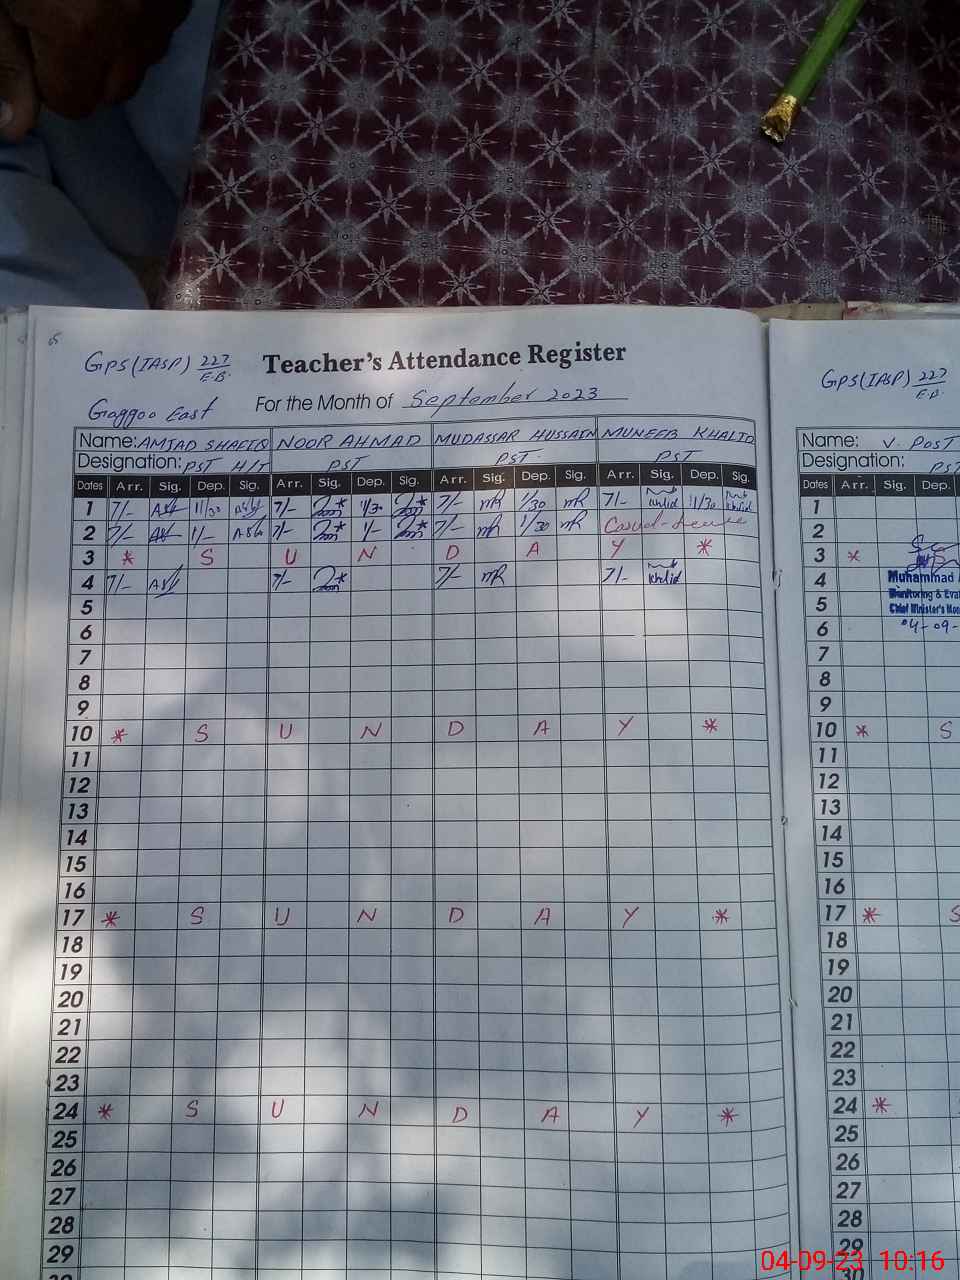 GPS(IASP) 227/E.B. Teacher's Attendance Register
Gaggoo East For the Month of September 2023
Name: AMJAD SHAFIQ NOOR AHMAD MUDASSAR HUSSAIN MUNEEB KHALID
Designation: PST H/T PST PST PST
Dates Arr. Sig. Dep. Sig. Arr. Sig. Dep. Sig. Arr. Sig. Dep. Sig. Arr. Sig. Dep. Sig.
1 7/- 11/30 7/- 11/30 7/- mR 1/30 mR 7/- 11/30 khalid
2 7/- 1/- 7/- 1/- 7/- mR 1/30 mR Casual-leave
3 * S U N D A Y *
4 7/- 7/- 7/- mR 7/- khalid
5
6
7
8
9
10 * S U N D A Y *
11
12
13
14
15
16
17 * S U N D A Y *
18
19
20
21
22
23
24 * S U N D A Y *
25
26
27
28
29
30
GPS(IASP) 227/E.B
Name: V. POST
Designation: PST
Dates Arr. Sig. Dep.
1
2
3 * S
4 Muhammad
5 Monitoring & Eva
Chief Minister's Mon
6 04-09-
7
8
9
10 * S
11
12
13
14
15
16
17 * S
18
19
20
21
22
23
24 *
25
26
27
28
29
30
04-09-23 10:16